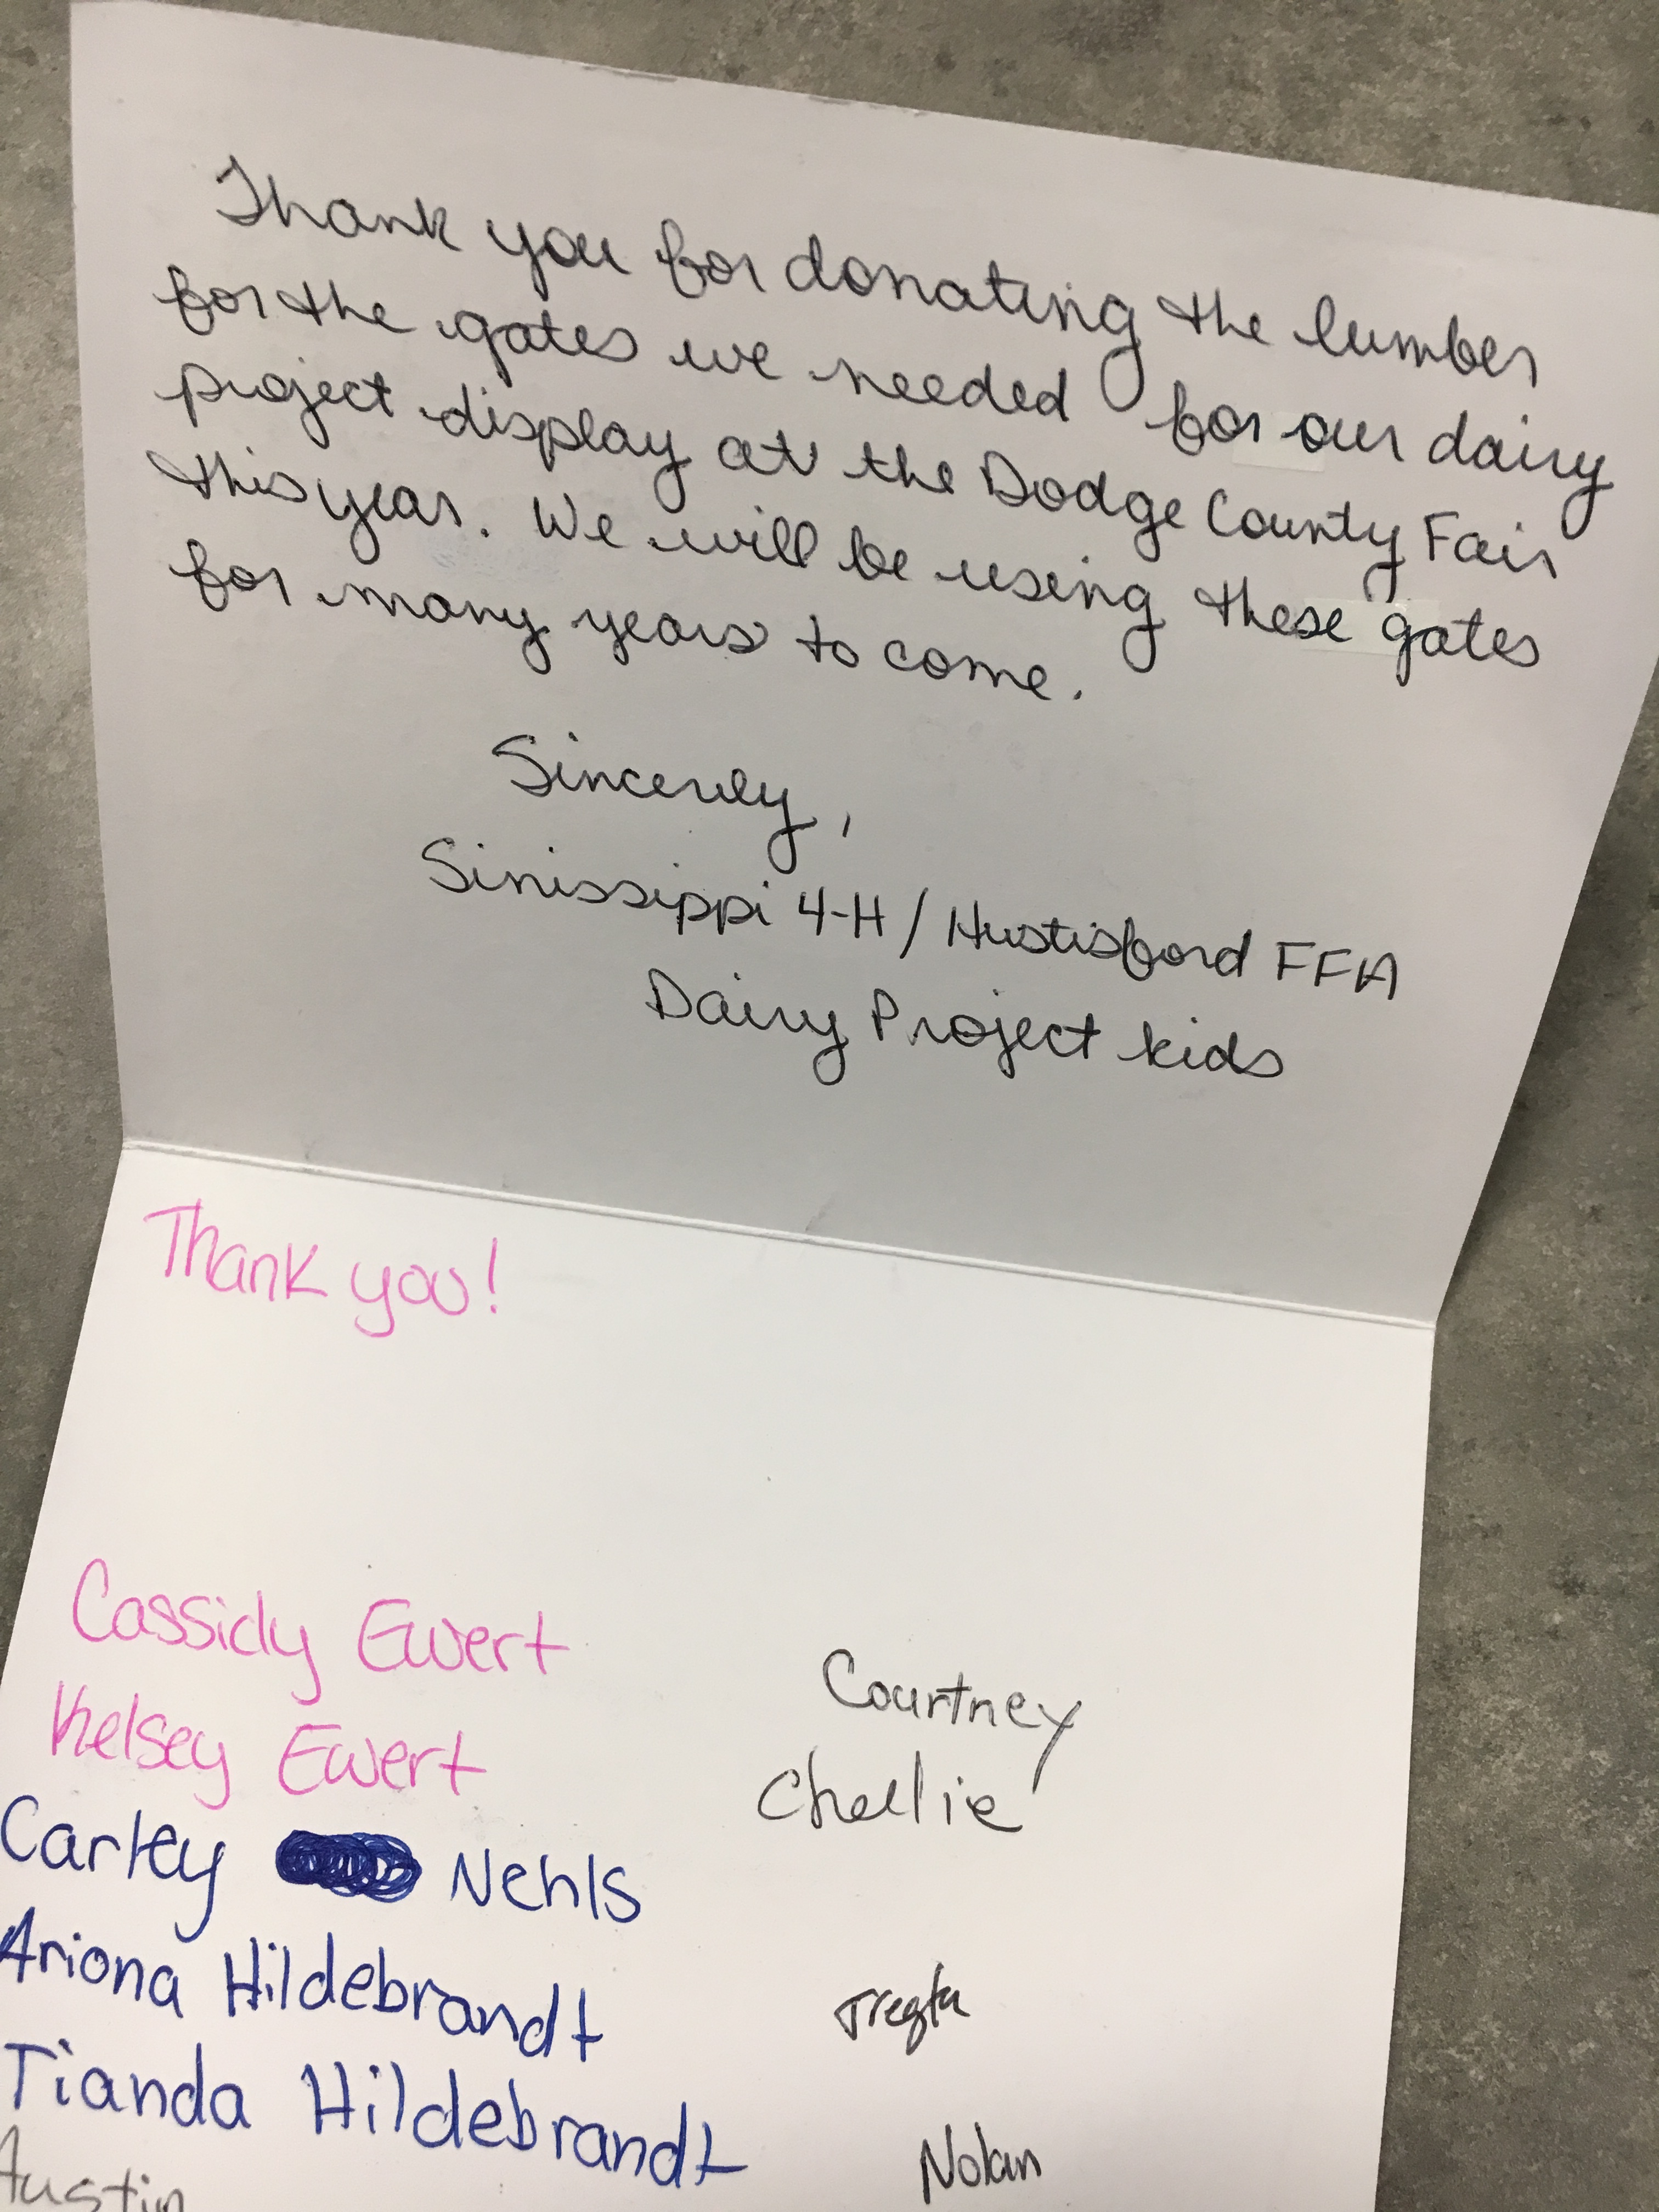 Thank you for donating the lumber
for the gates we needed for our dairy
project display at the Dodge County Fair
this year. We will be using these gates
for many years to come.
Sincerely,
Sinissippi 4-H / Hustisford FFA
Dairy Project kids
Thank you!
Cassidy Ewert
Kelsey Ewert
Courtney
Carley Nehls
Ariona Hildebrandt
Tianda Hildebrandt
Nolan
Austin